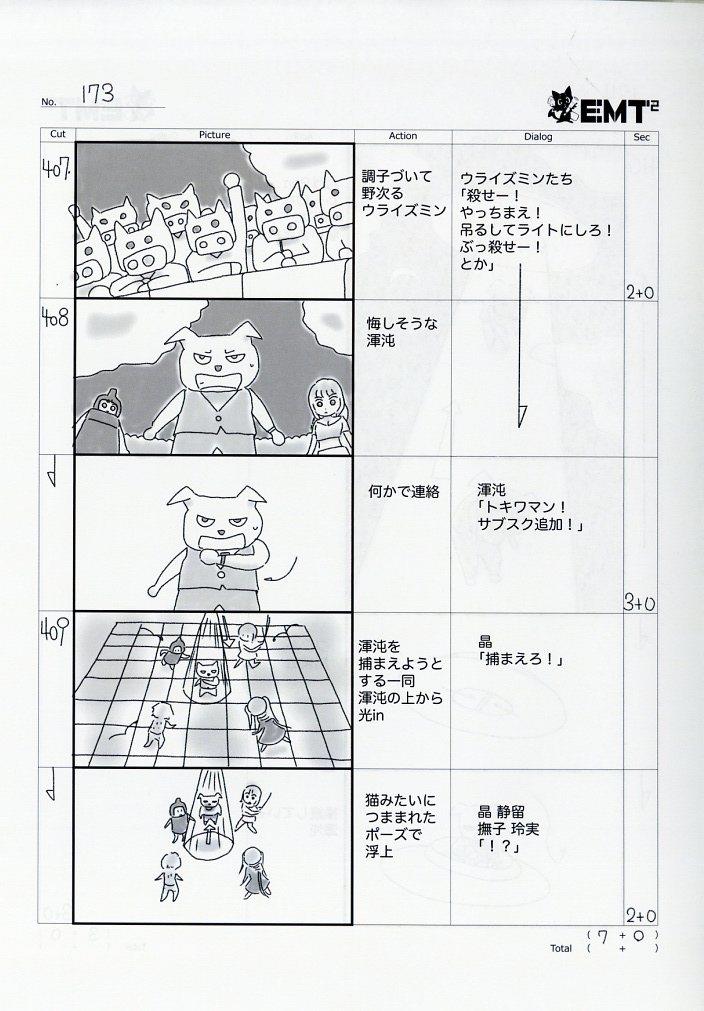 No. 173
EMT²
Cut Picture Action Dialog Sec
407
調子づいて
野次る
ウライズミン
ウライズミンたち
「殺せー！
やっちまえ！
吊るしてライトにしろ！
ぶっ殺せー！
とか」
2+0
408
悔しそうな
渾沌
何かで連絡
渾沌
「トキワマン！
サブスク追加！」
3+0
409
渾沌を
捕まえようと
する一同
渾沌の上から
光in
晶
「捕まえろ！」
猫みたいに
つままれた
ポーズで
浮上
晶 静留
撫子 玲実
「！？」
2+0
( 7 + 0 )
Total ( + )